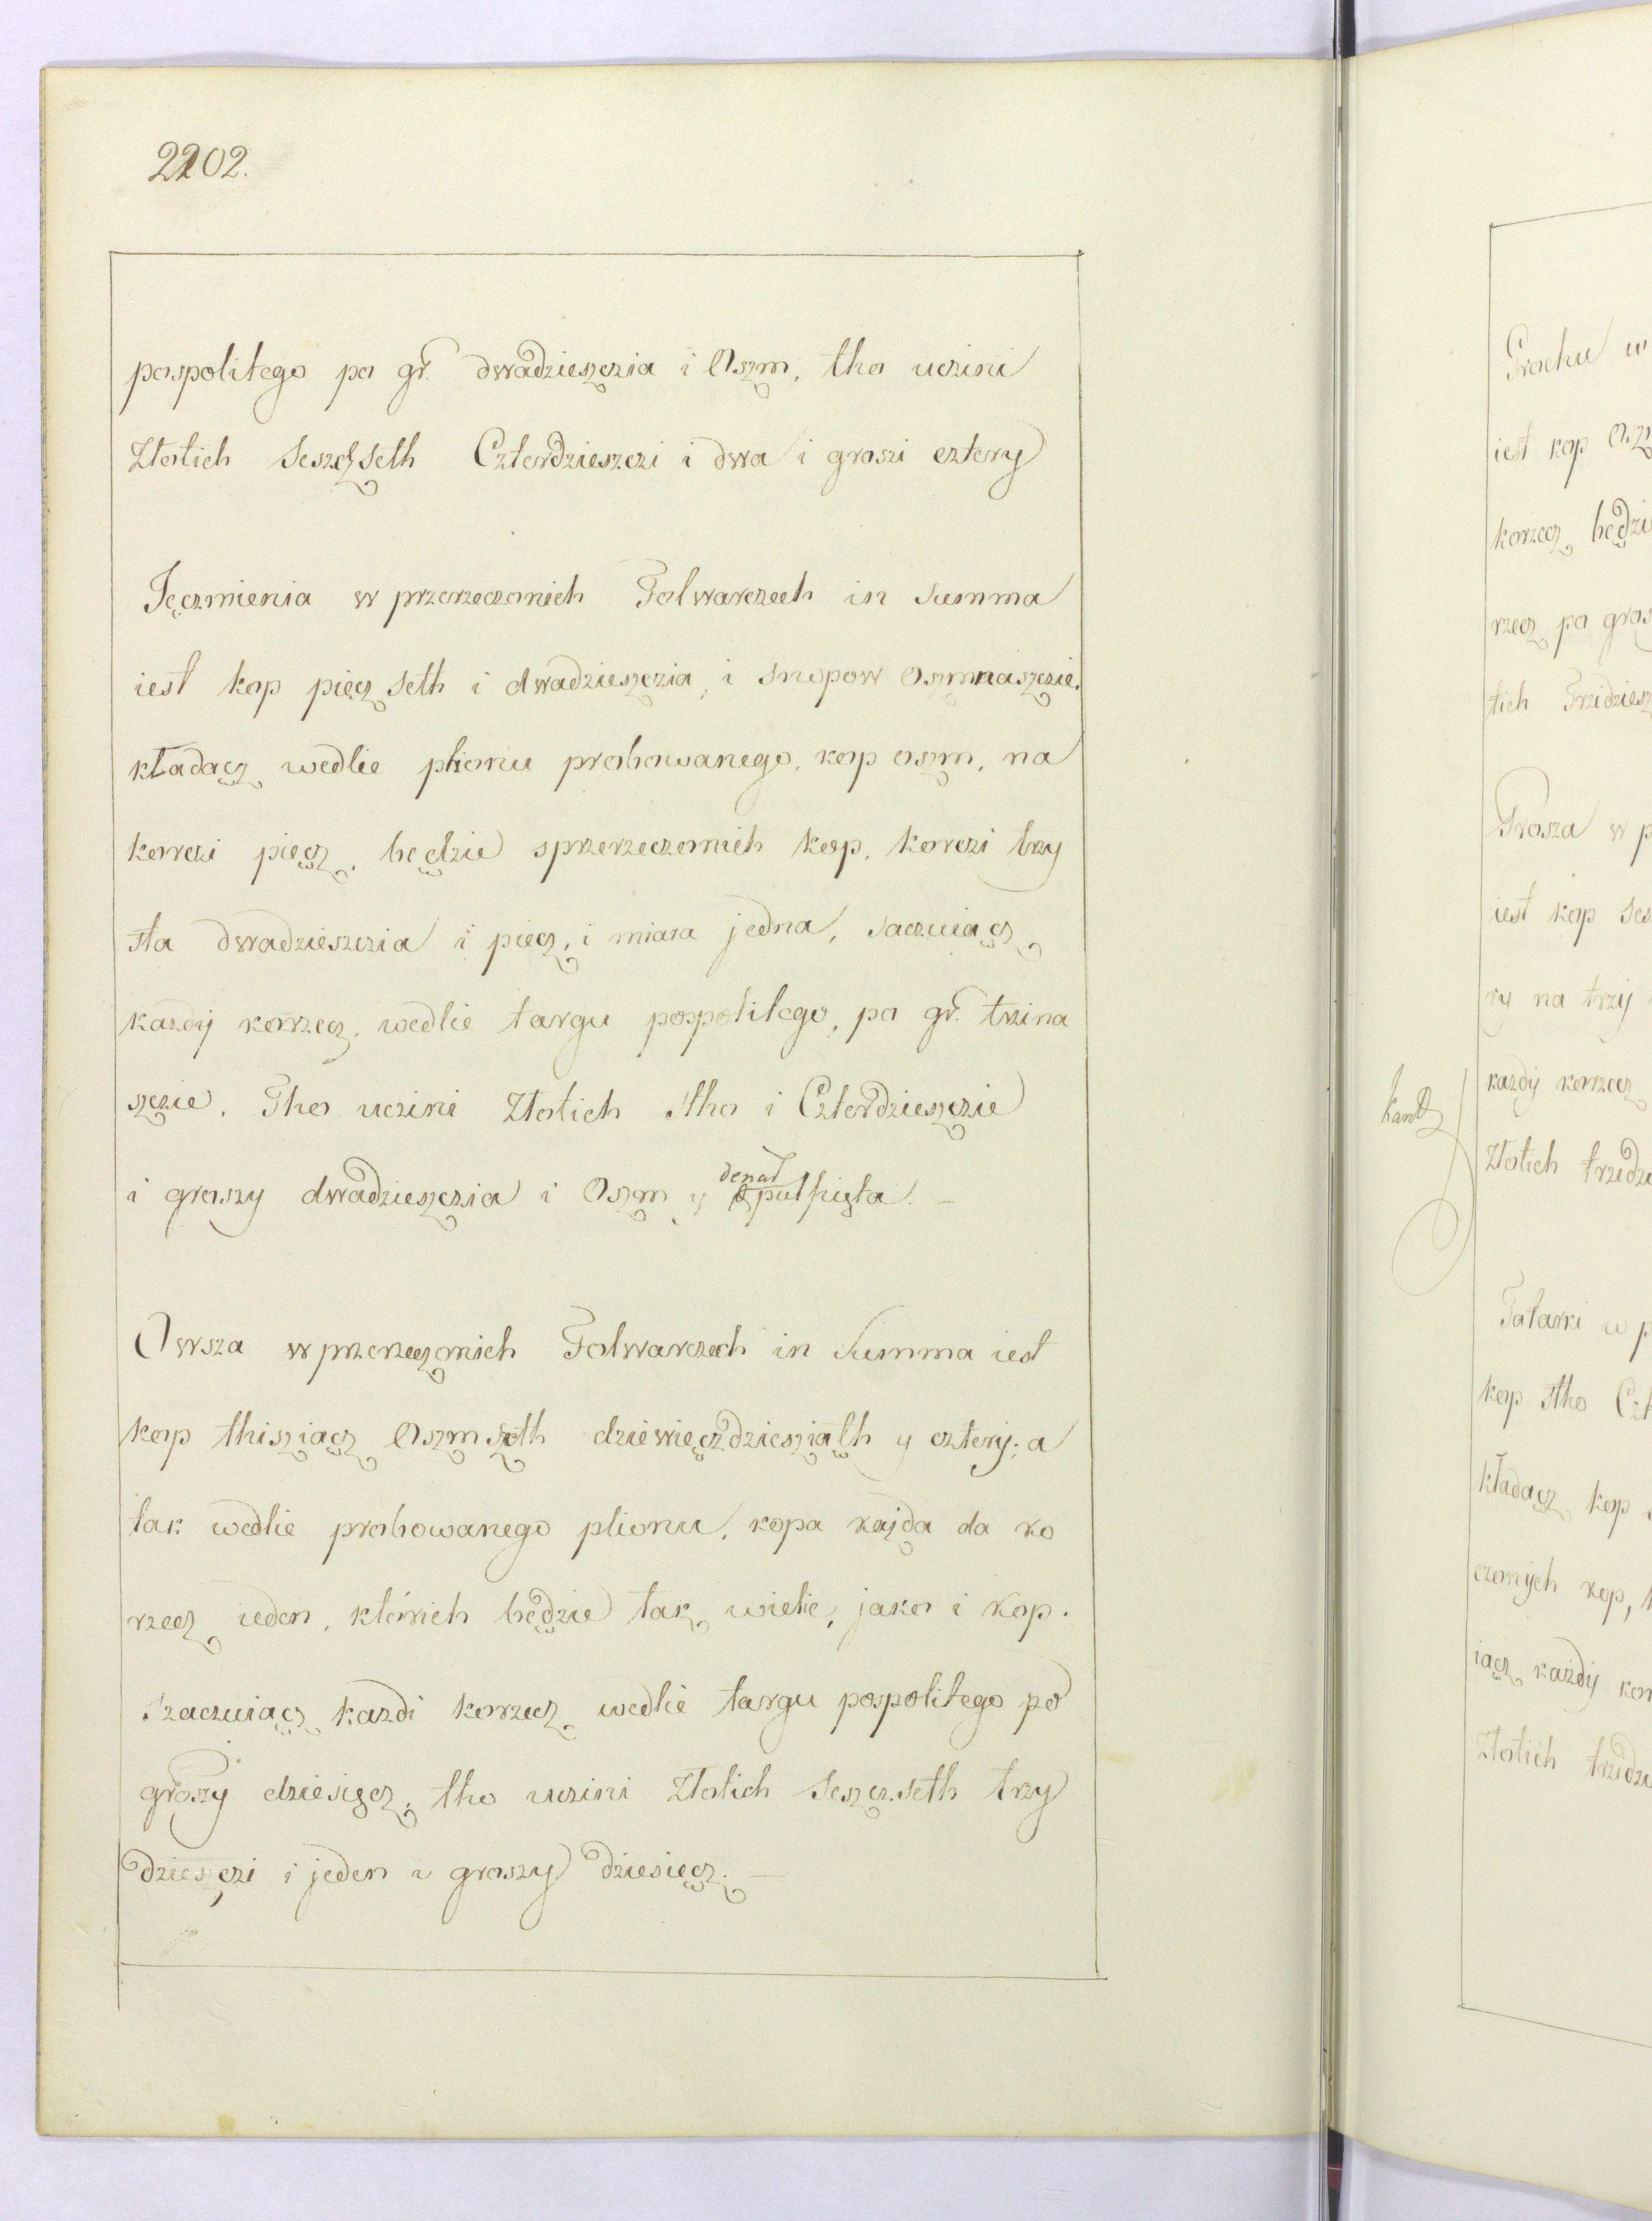 2202.
pospolitego po gr. dwadziesczia i Oszm, tho uczini
Złotich Seszczseth Czterdziesczi i dwa i groszi cztery
Jęczmienia w przerzeczonich Folwarczech in Summa
iest kop pięcz seth i dwadziesczia, i snopow oszmnasczie.
kładącz wedlie plionu probowanego, kop oszm, na
korczi pięcz, będzie sprzerzeczonich kop, korczi trzy
sta dwadziesczia i pięcz, i miara jedna, sacuiącz
każdy korzecz, wedlie targu pospolitego, po gr. trzina
szczie. Tho uczini Złotich stho i Czterdziesczie
i groszy dwadziesczia i Oszm y denar pułpięta. –
Owsza w przerzeczonich Folwarczech in Summa iest
kop thisziącz Oszmseth dziewięczdziesziąth y cztery; a
tak wedlie probowanego plionu, kopa każda da ko
rzecz ieden, których będzie tak wielie, jako i kop.
Szaczuiącz każdi korzecz wedlie targu pospolitego po
groszy dziesięcz, tho uczini Złotich Seszcz.seth trzy
dziesczi i jeden i groszy dziesięcz. –
Grochu w
iest kop Osz
korzecz będzi
rzecz po gros
tich Trzidziesz
Prosza w p
iest kop Ses
ry na trzy
każdy korzecz
Złotich trzidzi
Tatarki w p
kop stho Czt
kładącz kop
czonych kop,
iącz każdy kor
Złotich trzidzi